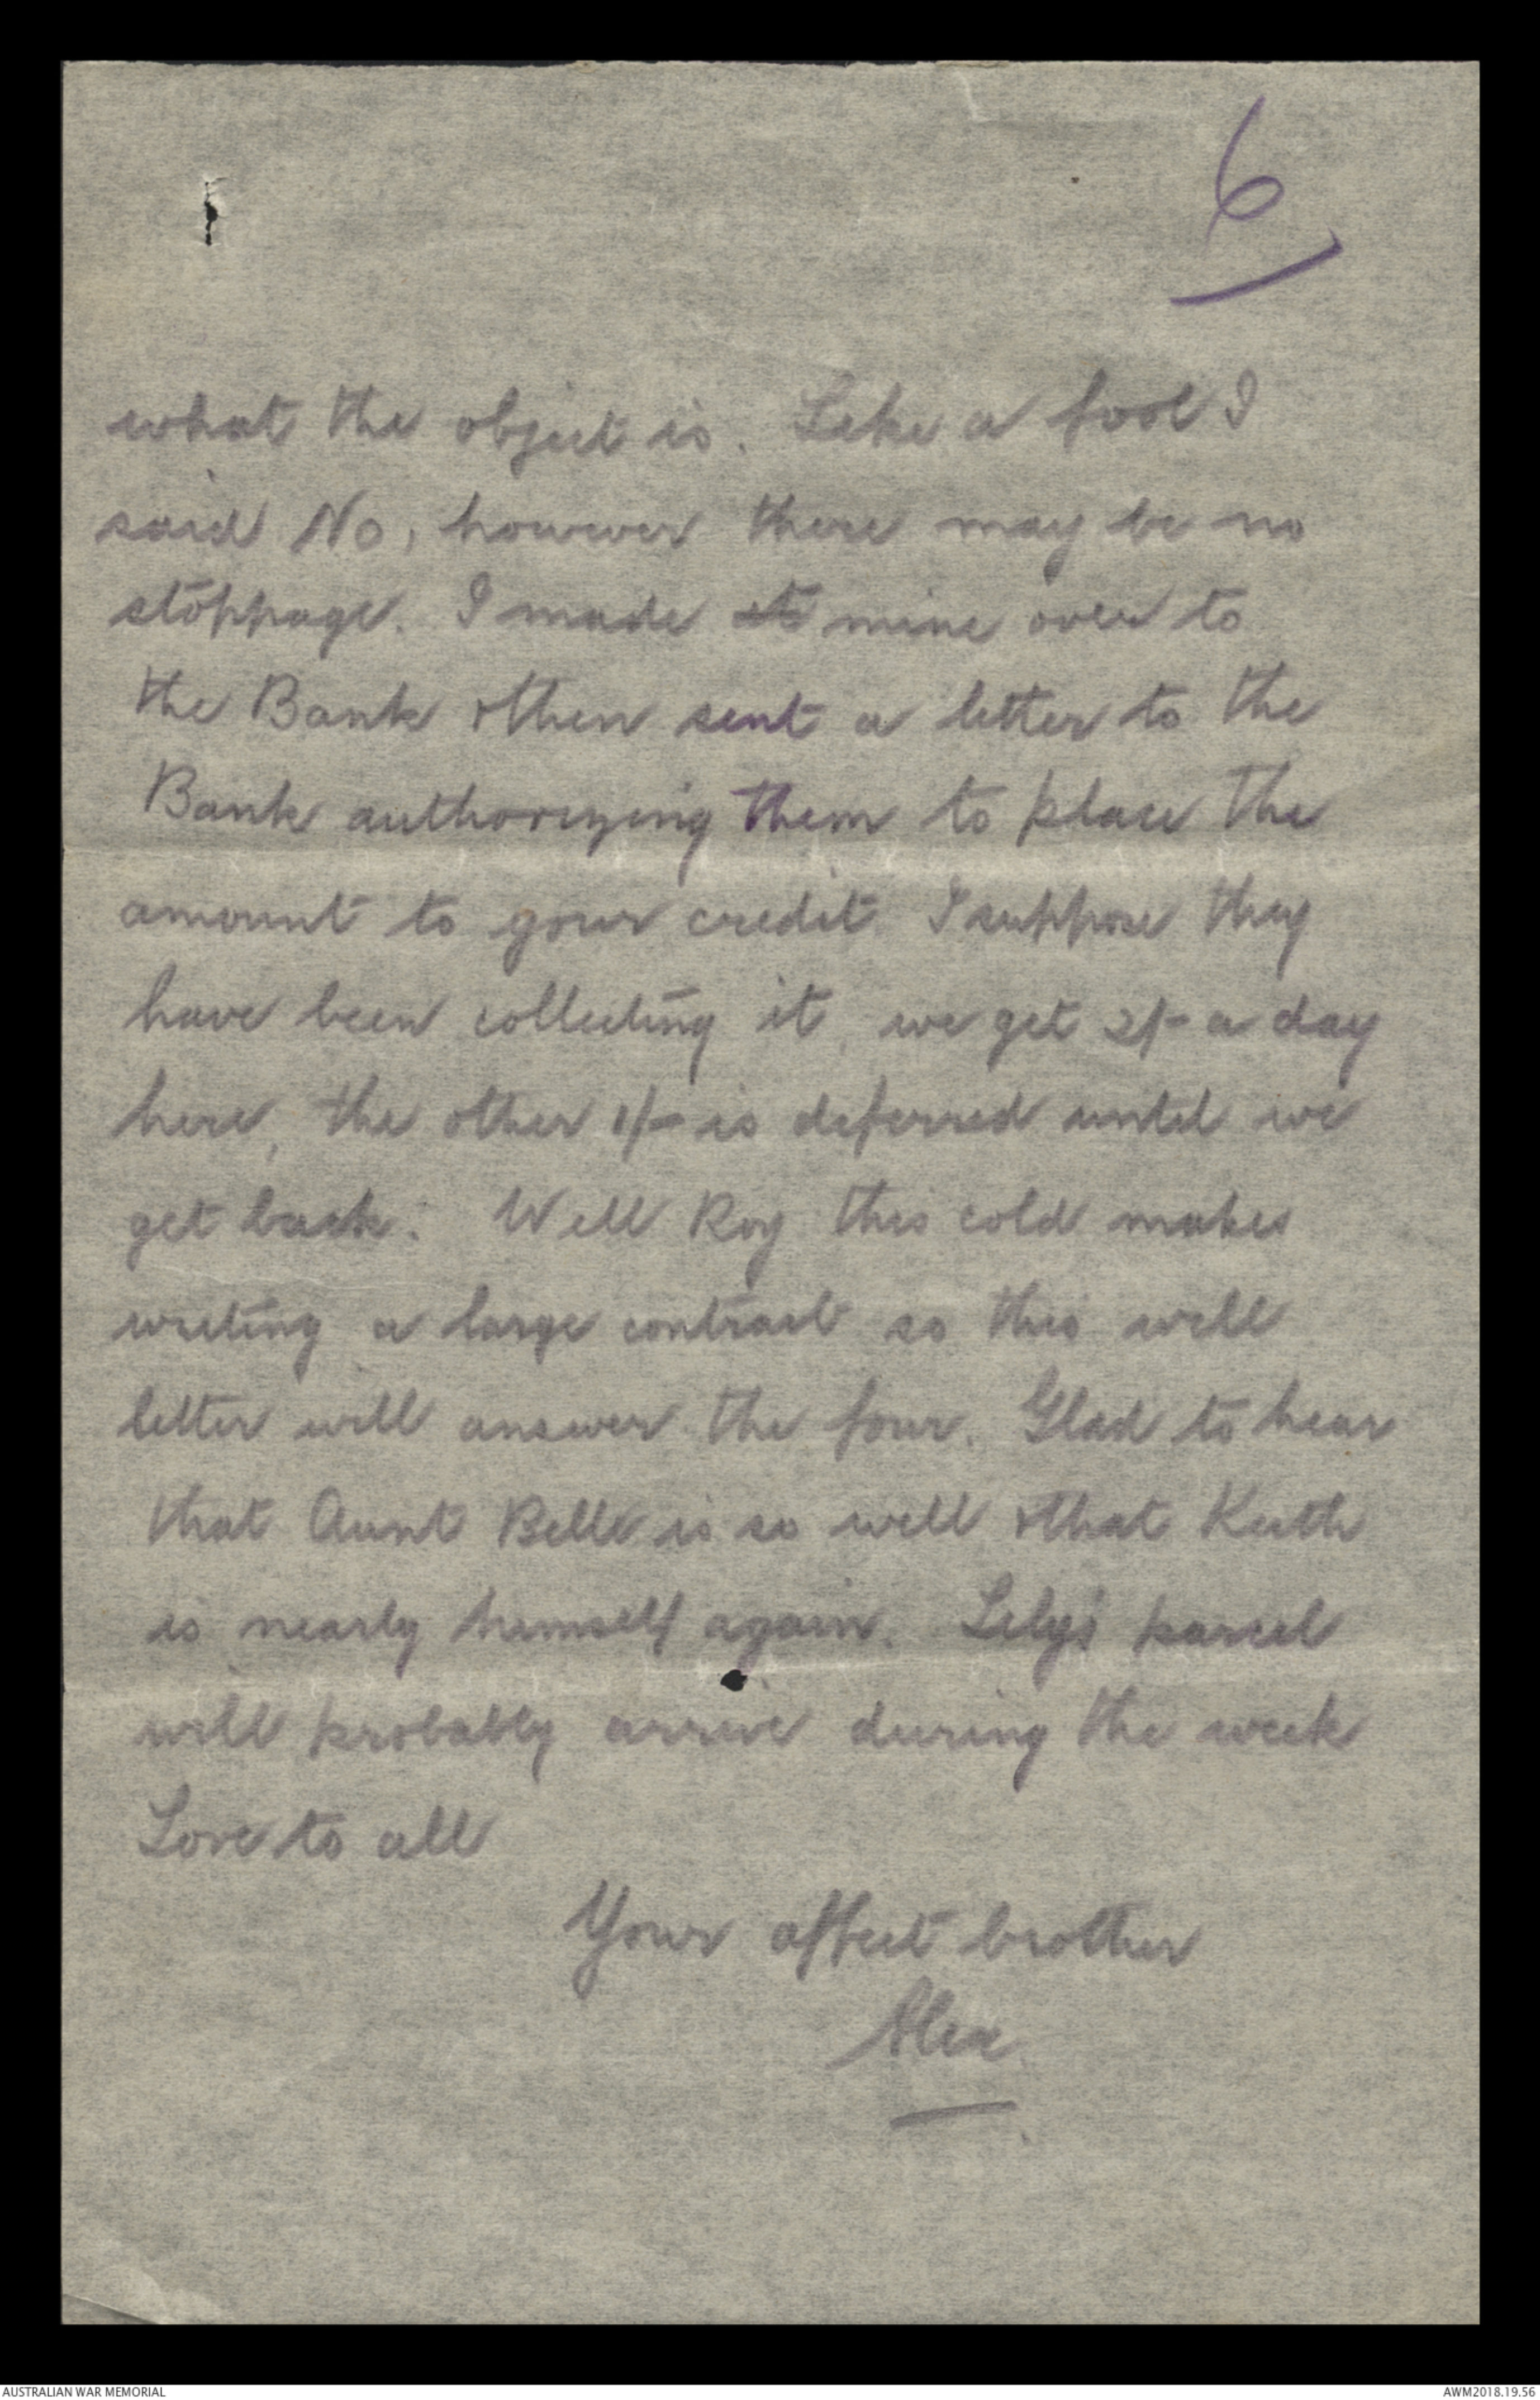 6
what the object is. Like a fool I
said No, however there may be no
stoppage. I made it mine over to
the Bank & then sent a letter to the
Bank authorizing them to place the
amount to your credit. I suppose they
have been collecting it, we get 2/- a day
here, the other 1/- is deferred until we
get back. Well Roy this cold makes
writing a large contract so this will
letter will answer the four. Glad to hear
that Aunt Belle is so well & that Keith
is nearly himself again. Lily's parcel
will probably arrive during the week
Love to all
Your affect brother
Alex
AUSTRALIAN WAR MEMORIAL
AWM2018.19.56